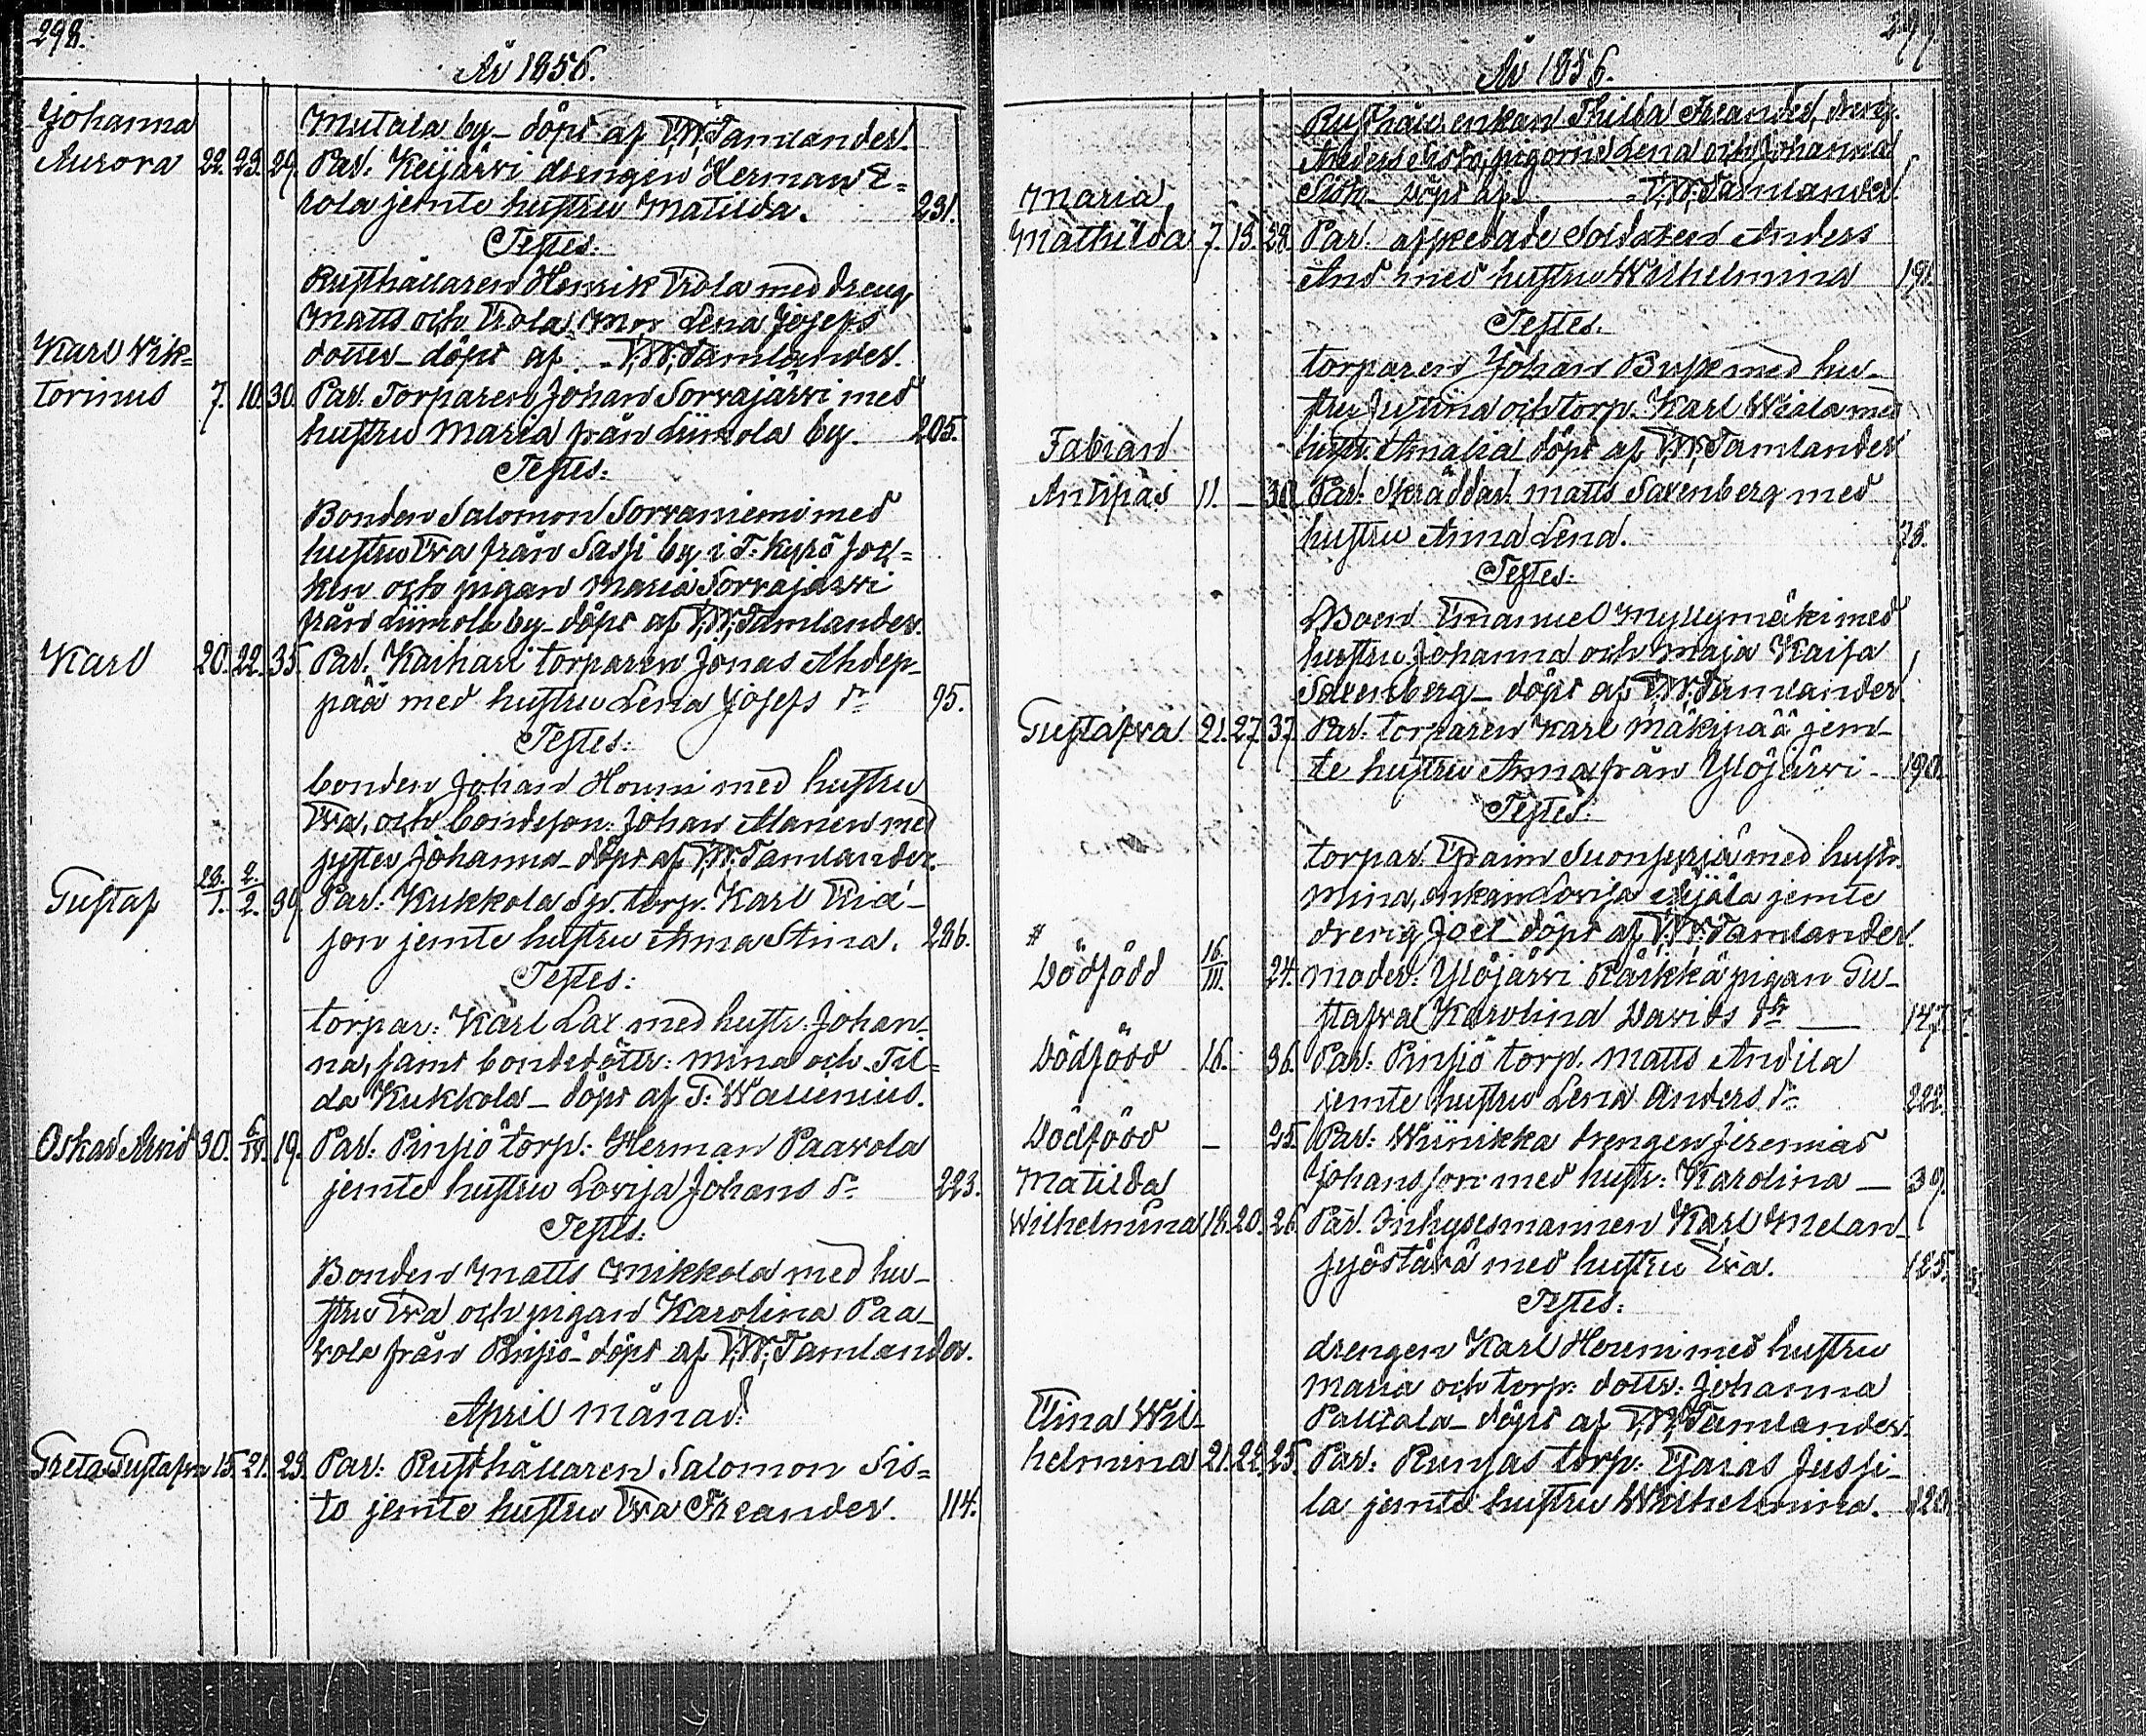 298.
År 1856.
Mutala by – döpt af T. W. Tamlander.
Johanna
Aurora 22. 23. 29. Par: Keijärvi drengen Herman E=
rola jemte hustru Matilda. 231.
Testes:
Rusthållaren Henrik Erola med dreng
Matts och Erola Mor Lena Josefs
dotter – döpt af T. W. Tamlander.
Karl Vik=
torinus 7. 10. 30. Par: Torparen Johan Sorvajärvi med
hustru Maria från Liimola by. 205.
Testes:
Bonden Salomon Sorvaniemi med
hustru Eva från Sassi by i T: Kyrö Soc=
ken och pigan Maria Sorvajärvi
från Liimola by – döpt af T. W. Tamlander.
Karl 20. 22. 35. Par. Kaihari torparen Jonas Ahdep-
pää med hustru Lena Josefs dr 95.
Testes:
bonden Johan Honni med hustru
Eva, och bondeson: Johan Alanen med
syster Johanna – döpt af T. W. Tamlander.
Gustaf 28./1. 2./2. 39. Par: Kukkola Sp. torp. Karl Frid-
son jemte hustru Anna Stina. 286.
Testes:
torpar: Karl Lax med hustr: Johan-
na, samt bondedöttr: Mina och Til=
da Kukkola – döpt af T: Wallenius.
Oskar Arvid 30. 6/IV. 19. Par: Pinsiö torp: Herman Paavola
jemte hustru Lovisa Johans dr 223.
Testes:
Bonden Matts Mikkola med hu-
stru Eva och pigan Karolina Paa-
vola från Pinsiö – döpt af T. W. Tamlander.
April månad:
Greta Gustafva 15. 21. 23. Par: Rusthållaren Salomon Sis=
to jemte hustru Eva Freander. 114.
299.
År 1856.
Rusthåll. enkan Thilda Freander, dreng.
Anders Sisto, pigorne Lena och Johanna
Sisto – döpt af T. W. Tamlander.
Maria
Mathilda 7. 13. 28. Par. afskedade Soldaten Anders
And med hustru Wilhelmina 191.
Testes.
torparen Johan Busk med hu-
stru Justina och torp. Karl Wiala med
hustr. Amalia döpt af T. W. Tamlander
Fabian
Antipas 11. – 30. Par: Skräddar: Matts Saxenberg med
hustru Anna Lena. 75.
Testes:
Boen Emanuel Myllymäki med
hustru Johanna och Maja Kaisa
Saxenberg – döpt af T. W. Tamlander
Gustafva 21. 27. 37. Par. torparen Karl Mäkipää jem-
te hustru Anna från Ylöjärvi – 190.
Testes:
torpar. Efraim Suonsyrjä med hustr.
Mina, enkan Lovisa jemte
dreng Joel döpt af T. W. Tamlander.
#
Dödfödd 16/III. 24. moder: Ylöjärvi Räikkä pigan Gu-
stafva Karolina Davids dr — 147.
Dödfödd 16. 36. Par: Pinsiö torp. Matts Andila
jemte hustru Lena Anders dr 222.
Dödfödd – 25. Par: Wiinikka drengen Jeremias
Johansson med hustr: Karolina — 39.
Matilda
Wilhelmina 18. 20. 26. Par. Inhysesmannen Karl Melan-
syöstävä med hustru Eva. 125.
Testes:
drengen Karl Honni med hustru
Maria och torp: dottr: Johanna
Pallala – döpt af T. W. Tamlander.
Elina Wil-
helmina 21. 22. 25. Par: Runsas torp: Esaias Jussi-
la jemte hustru Wilhelmina. 120.